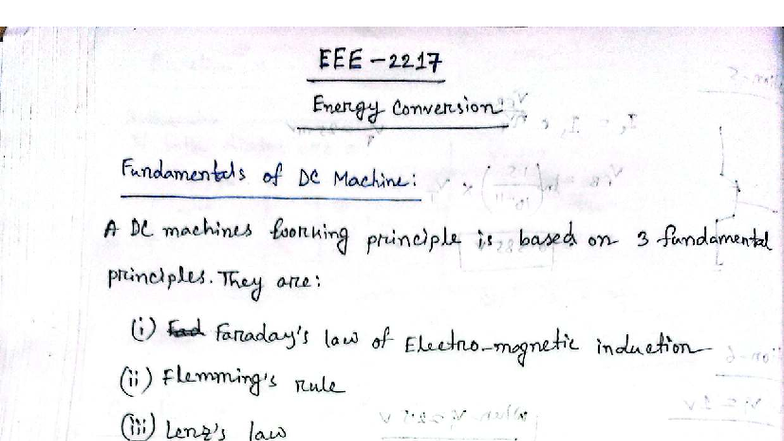 EEE-2217
Energy Conversion
Fundamentals of DC Machine:
A DC machines working principle is based on 3 fundamental
principles. They are:
(i) Faraday's law of Electro-magnetic induction
(ii) Flemming's rule
(iii) Lenz's law